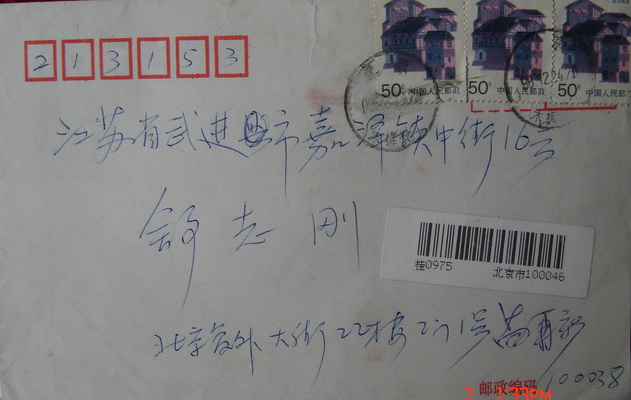 213153
50分 中国人民邮政 50分 中国人民邮政 50分 中国人民邮
江苏省武进市嘉泽镇中街16号
舒志刚
挂0975 北京市100046
北京复外大街22楼2门1号
邮政编码 100038